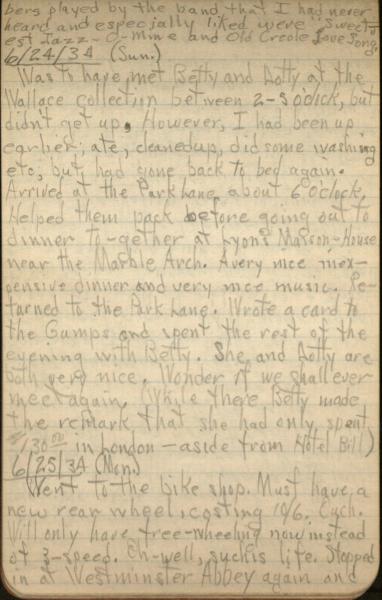 bers played by the band that I had never
heard and especially liked were "Sweet-
est Jazz - O-Mine and Old Creole Love Song"
6/24/34 (Sun.)
Was to have met Betty and Dotty at the
Wallace collection between 2-3 o'clock, but
didn't get up. However, I had been up
earlier, ate, cleaned up, did some washing
etc, but had gone back to bed again.
Arrived at the Park Lane about 6 O'clock.
Helped them pack before going out to
dinner to-gether at Lyons Maison-House
near the Marble Arch. A very nice inex-
pensive dinner and very nice music. Re-
turned to the Park Lane. Wrote a card to
the Gumps and spent the rest of the
evening with Betty. She and Dotty are
both very nice. Wonder if we shall ever
meet again. (While there Betty made
the remark that she had only spent
$130.00 in London - aside from Hotel Bill)
6/25/34 (Mon.)
Went to the bike shop. Must have a
new rear wheel, costing 10/6. Ouch.
Will only have free-wheeling now instead
of 3-speed. Oh-well, such is life. Stopped
in at Westminster Abbey again and